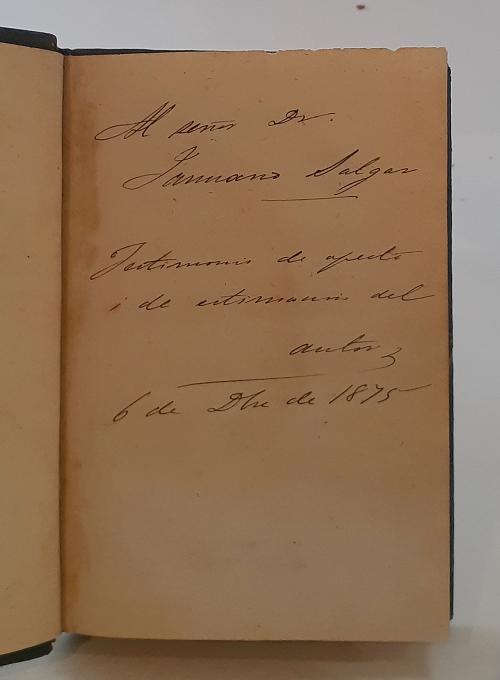 Al señor Dr.
Januario Salgar
Testimonio de afecto
i de estimacion del
autor
6 de Dbe de 1875